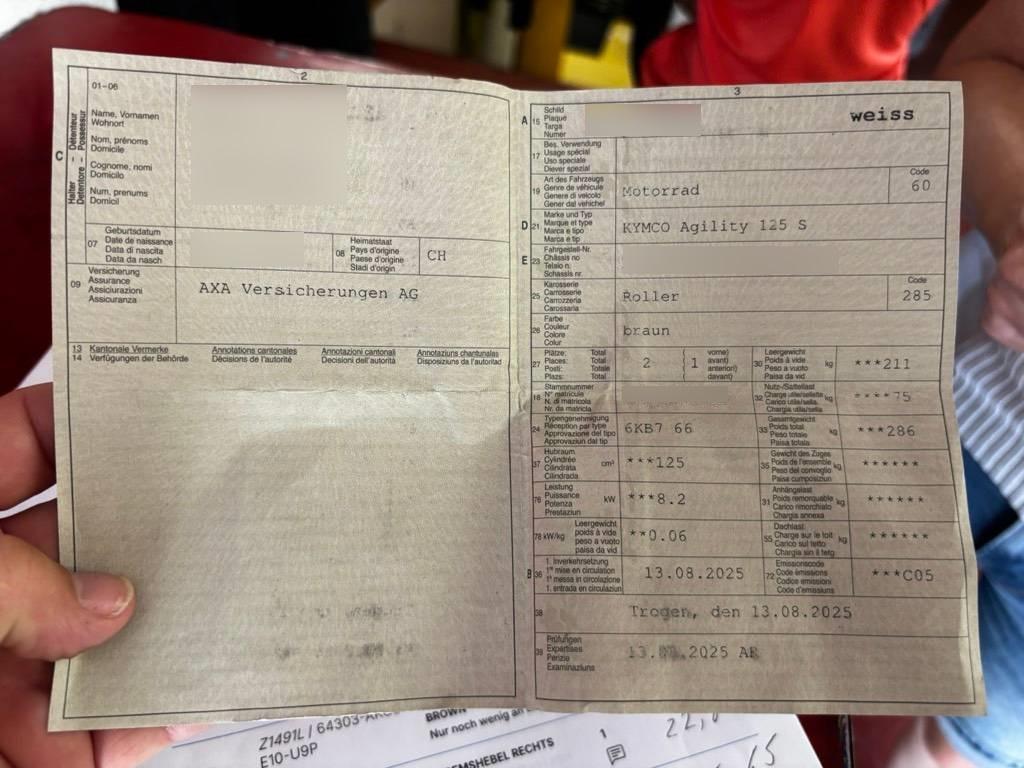 2
01-06
Name, Vornamen
Wohnort
Nom, prénoms
Domicile
Cognome, nomi
Domicilo
Num, prenums
Domicil
C
Halter - Détenteur
Detentore - Possessur
07
Geburtsdatum
Date de naissance
Data di nascita
Data da nasch
08
Heimatstaat
Pays d'origine
Paese d'origine
Stadi d'origin
CH
09
Versicherung
Assurance
Assiciurazioni
Assicuranza
AXA Versicherungen AG
13 Kantonale Vermerke Annotations cantonales Annotazioni cantonali Annotaziuns chantunalas
14 Verfügungen der Behörde Décisions de l'autorité Decisioni dell'autorità Disposiziuns da l'autoritad
3
A 15
Schild
Plaque
Targa
Numer
weiss
17
Bes. Verwendung
Usage spécial
Uso speciale
Diever spezial
19
Art des Fahrzeugs
Genre de véhicule
Genere di veicolo
Gener dal vehichel
Motorrad
Code
60
D 21
Marke und Typ
Marque et type
Marca e tipo
Marca e tip
KYMCO Agility 125 S
E 23
Fahrgestell-Nr.
Châssis no
Telaio n.
Schassis nr.
25
Karosserie
Carrosserie
Carrozzeria
Carossaria
Roller
Code
285
26
Farbe
Couleur
Colore
Colur
braun
27
Plätze: Total
Places: Total
Posti: Totale
Plazs: Total
2
( vorne)
( avant)
( anteriori)
( davant)
1
30
Leergewicht
Poids à vide
Peso a vuoto
Paisa da vid
kg
***211
18
Stammnummer
N° matricule
N. di matricola
Nr. da matricla
32
Nutz-/Sattellast
Charge utile/sellette
Carico utile/sella
Chargia utila/sella
kg
****75
24
Typengenehmigung
Réception par type
Approvazione del tipo
Approvaziun dal tip
6KB7 66
33
Gesamtgewicht
Poids total
Peso totale
Paisa totala
kg
***286
37
Hubraum
Cylindrée
Cilindrata
Cilindrada
cm³
***125
35
Gewicht des Zuges
Poids de l'ensemble
Peso del convoglio
Paisa cumposiziun
kg
******
76
Leistung
Puissance
Potenza
Prestaziun
kW
***8.2
31
Anhängelast
Poids remorquable
Carico rimorchiato
Chargia annexa
kg
******
78 kW/kg
Leergewicht
poids à vide
peso a vuoto
paisa da vid
**0.06
55
Dachlast
Charge sur le toit
Carico sul tetto
Chargia sin il tetg
kg
******
B 36
1. Inverkehrsetzung
1re mise en circulation
1a messa in circolazione
1. entrada en circulaziun
13.08.2025
72
Emissionscode
Code émissions
Codice emissioni
Code d'emissiuns
***C05
38
Trogen, den 13.08.2025
39
Prüfungen
Expertises
Perizie
Examinaziuns
2025 AR
Z1491L / 64303-
E10-U9P
BROWN
Nur noch wenig an
EMSHEBEL RECHTS
1